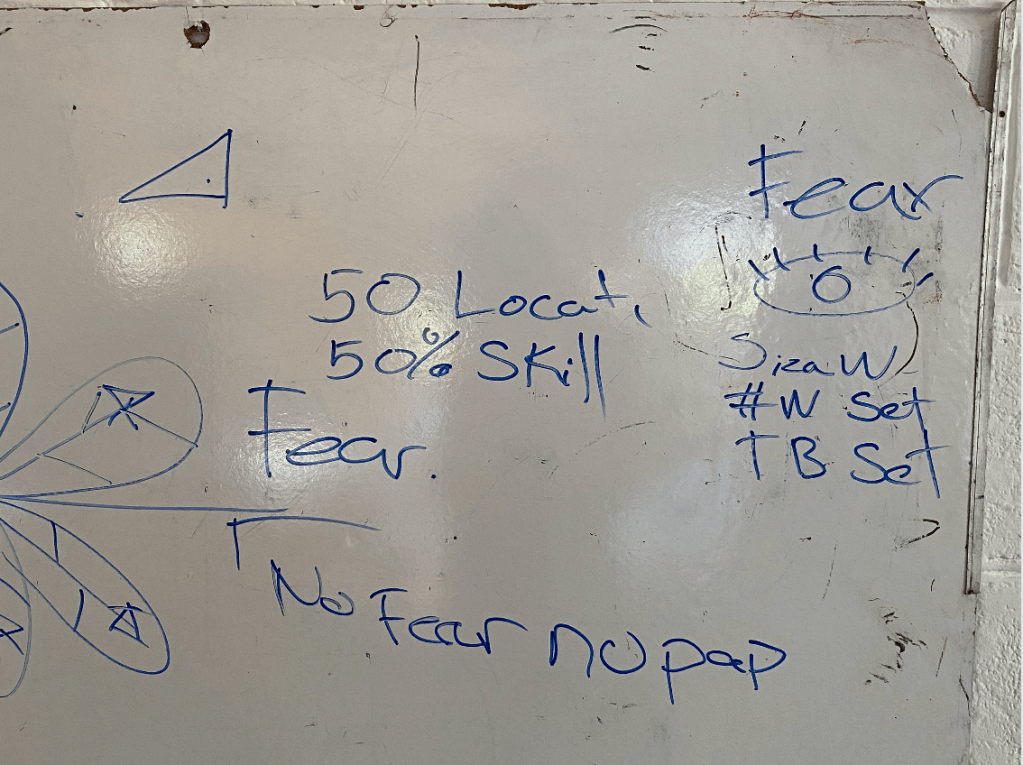 Fear
50 Locat,
50% Skill
Siza W
#W Set
TB Set
Fear.
No Fear no pap